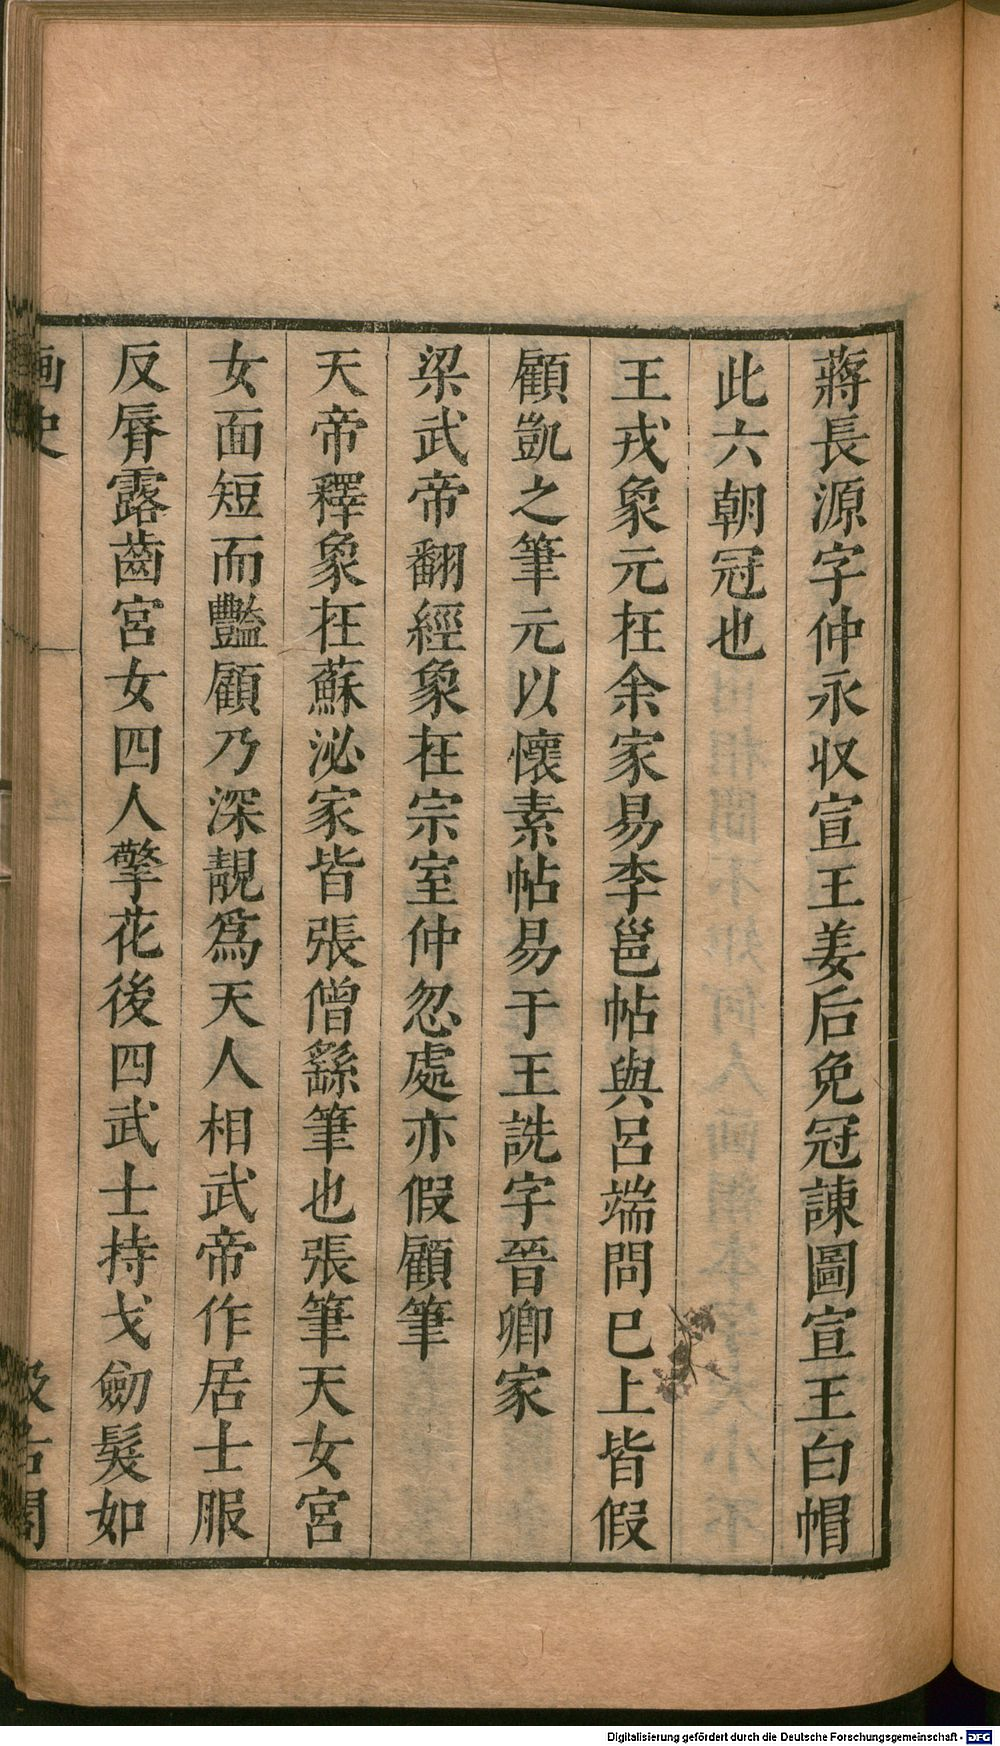 蔣長源字仲永収宣王姜后免冠諫圖宣王白帽
此六朝冠也
王戎象元在余家易李邕帖與呂端問巳上皆假
顧凱之筆元以懷素帖易于王詵字晉卿家
梁武帝翻經象在宗室仲忽處亦假顧筆
天帝釋象在蘇泌家皆張僧繇筆也張筆天女宮
女面短而豔顧乃深靚爲天人相武帝作居士服
反脣露齒宮女四人擎花後四武士持戈劒髮如
画史
汲古閣
Digitalisierung gefördert durch die Deutsche Forschungsgemeinschaft - DFG